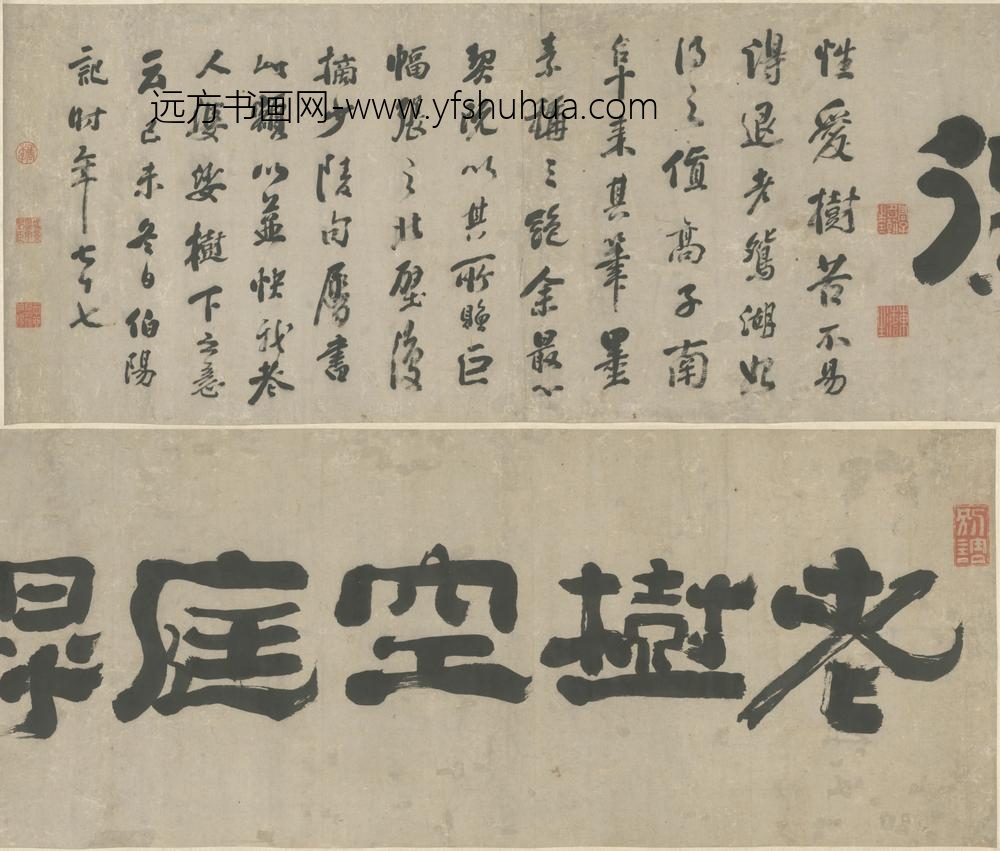 老樹空庭
性愛樹苦不易
得退老鴛湖始
得之值高子南
阜来其筆墨
素稱三絕余最心
契况以其所貽巨
幅張之北壁後
摘少陵句屬書
此額以並快我老
人婆娑樹下之意
云己未冬日伯陽
記时年七十七
远方书画网--www.yfshuhua.com